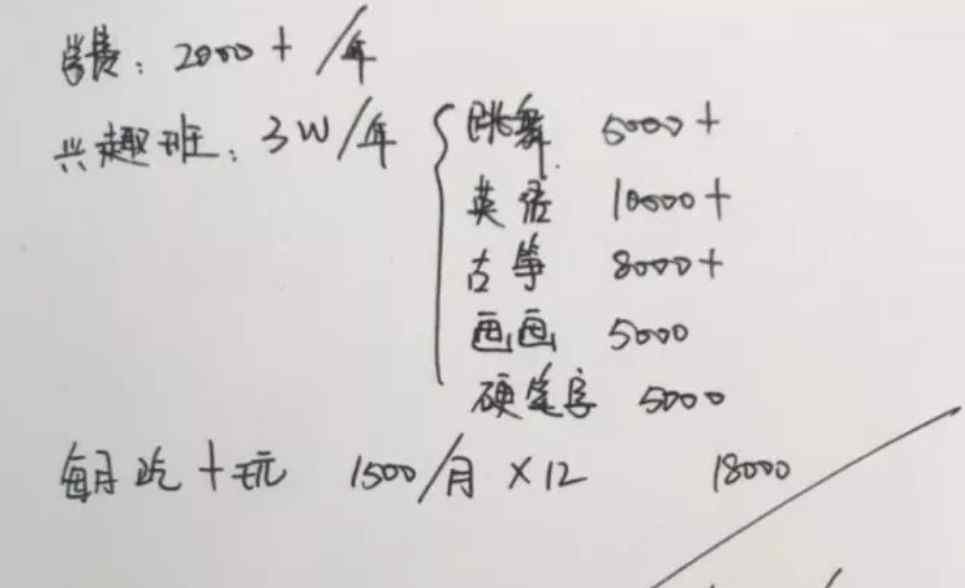 学费：2000+/年
兴趣班：3W/年 { 跳舞 5000+
英语 10000+
古筝 8000+
画画 5000
硬笔字 5000
每月吃+玩 1500/月×12 18000